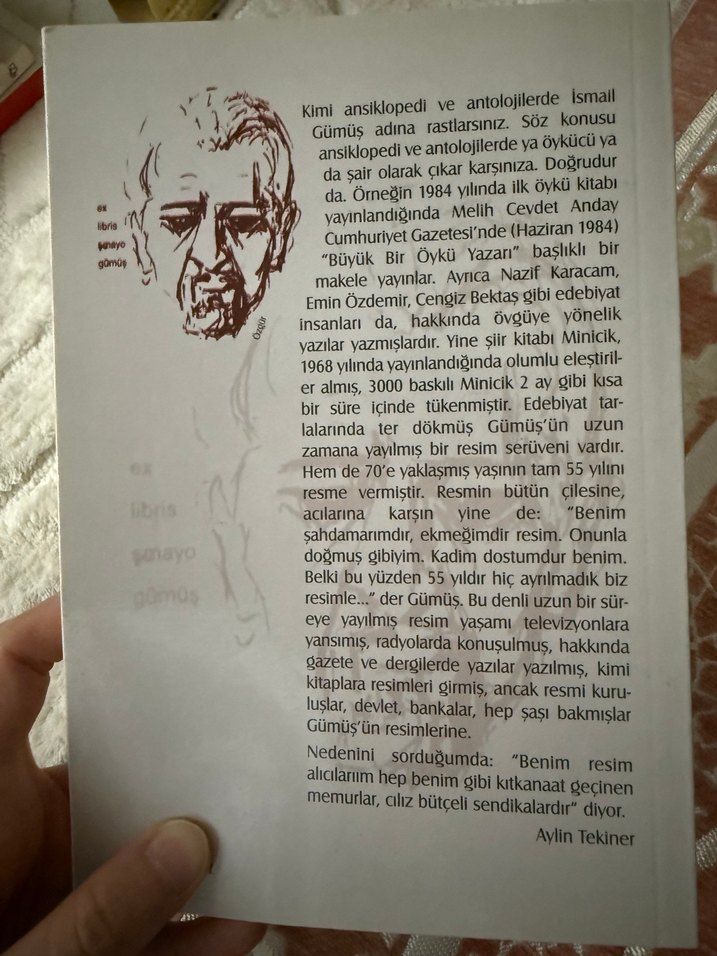 ex
libris
şınayo
gümüş
Özgür
Kimi ansiklopedi ve antolojilerde İsmail
Gümüş adına rastlarsınız. Söz konusu
ansiklopedi ve antolojilerde ya öykücü ya
da şair olarak çıkar karşınıza. Doğrudur
da. Örneğin 1984 yılında ilk öykü kitabı
yayınlandığında Melih Cevdet Anday
Cumhuriyet Gazetesi’nde (Haziran 1984)
“Büyük Bir Öykü Yazarı” başlıklı bir
makele yayınlar. Ayrıca Nazif Karacam,
Emin Özdemir, Cengiz Bektaş gibi edebiyat
insanları da, hakkında övgüye yönelik
yazılar yazmışlardır. Yine şiir kitabı Minicik,
1968 yılında yayınlandığında olumlu eleştiril-
er almış, 3000 baskılı Minicik 2 ay gibi kısa
bir süre içinde tükenmiştir. Edebiyat tar-
lalarında ter dökmüş Gümüş’ün uzun
zamana yayılmış bir resim serüveni vardır.
Hem de 70’e yaklaşmış yaşının tam 55 yılını
resme vermiştir. Resmin bütün çilesine,
acılarına karşın yine de: “Benim
şahdamarımdır, ekmeğimdir resim. Onunla
doğmuş gibiyim. Kadim dostumdur benim.
Belki bu yüzden 55 yıldır hiç ayrılmadık biz
resimle...” der Gümüş. Bu denli uzun bir sür-
eye yayılmış resim yaşamı televizyonlara
yansımış, radyolarda konuşulmuş, hakkında
gazete ve dergilerde yazılar yazılmış, kimi
kitaplara resimleri girmiş, ancak resmi kuru-
luşlar, devlet, bankalar, hep şaşı bakmışlar
Gümüş’ün resimlerine.
Nedenini sorduğumda: “Benim resim
alıcılarıım hep benim gibi kıtkanaat geçinen
memurlar, cılız bütçeli sendikalardır” diyor.
Aylin Tekiner
ex
libris
şınayo
gümüş